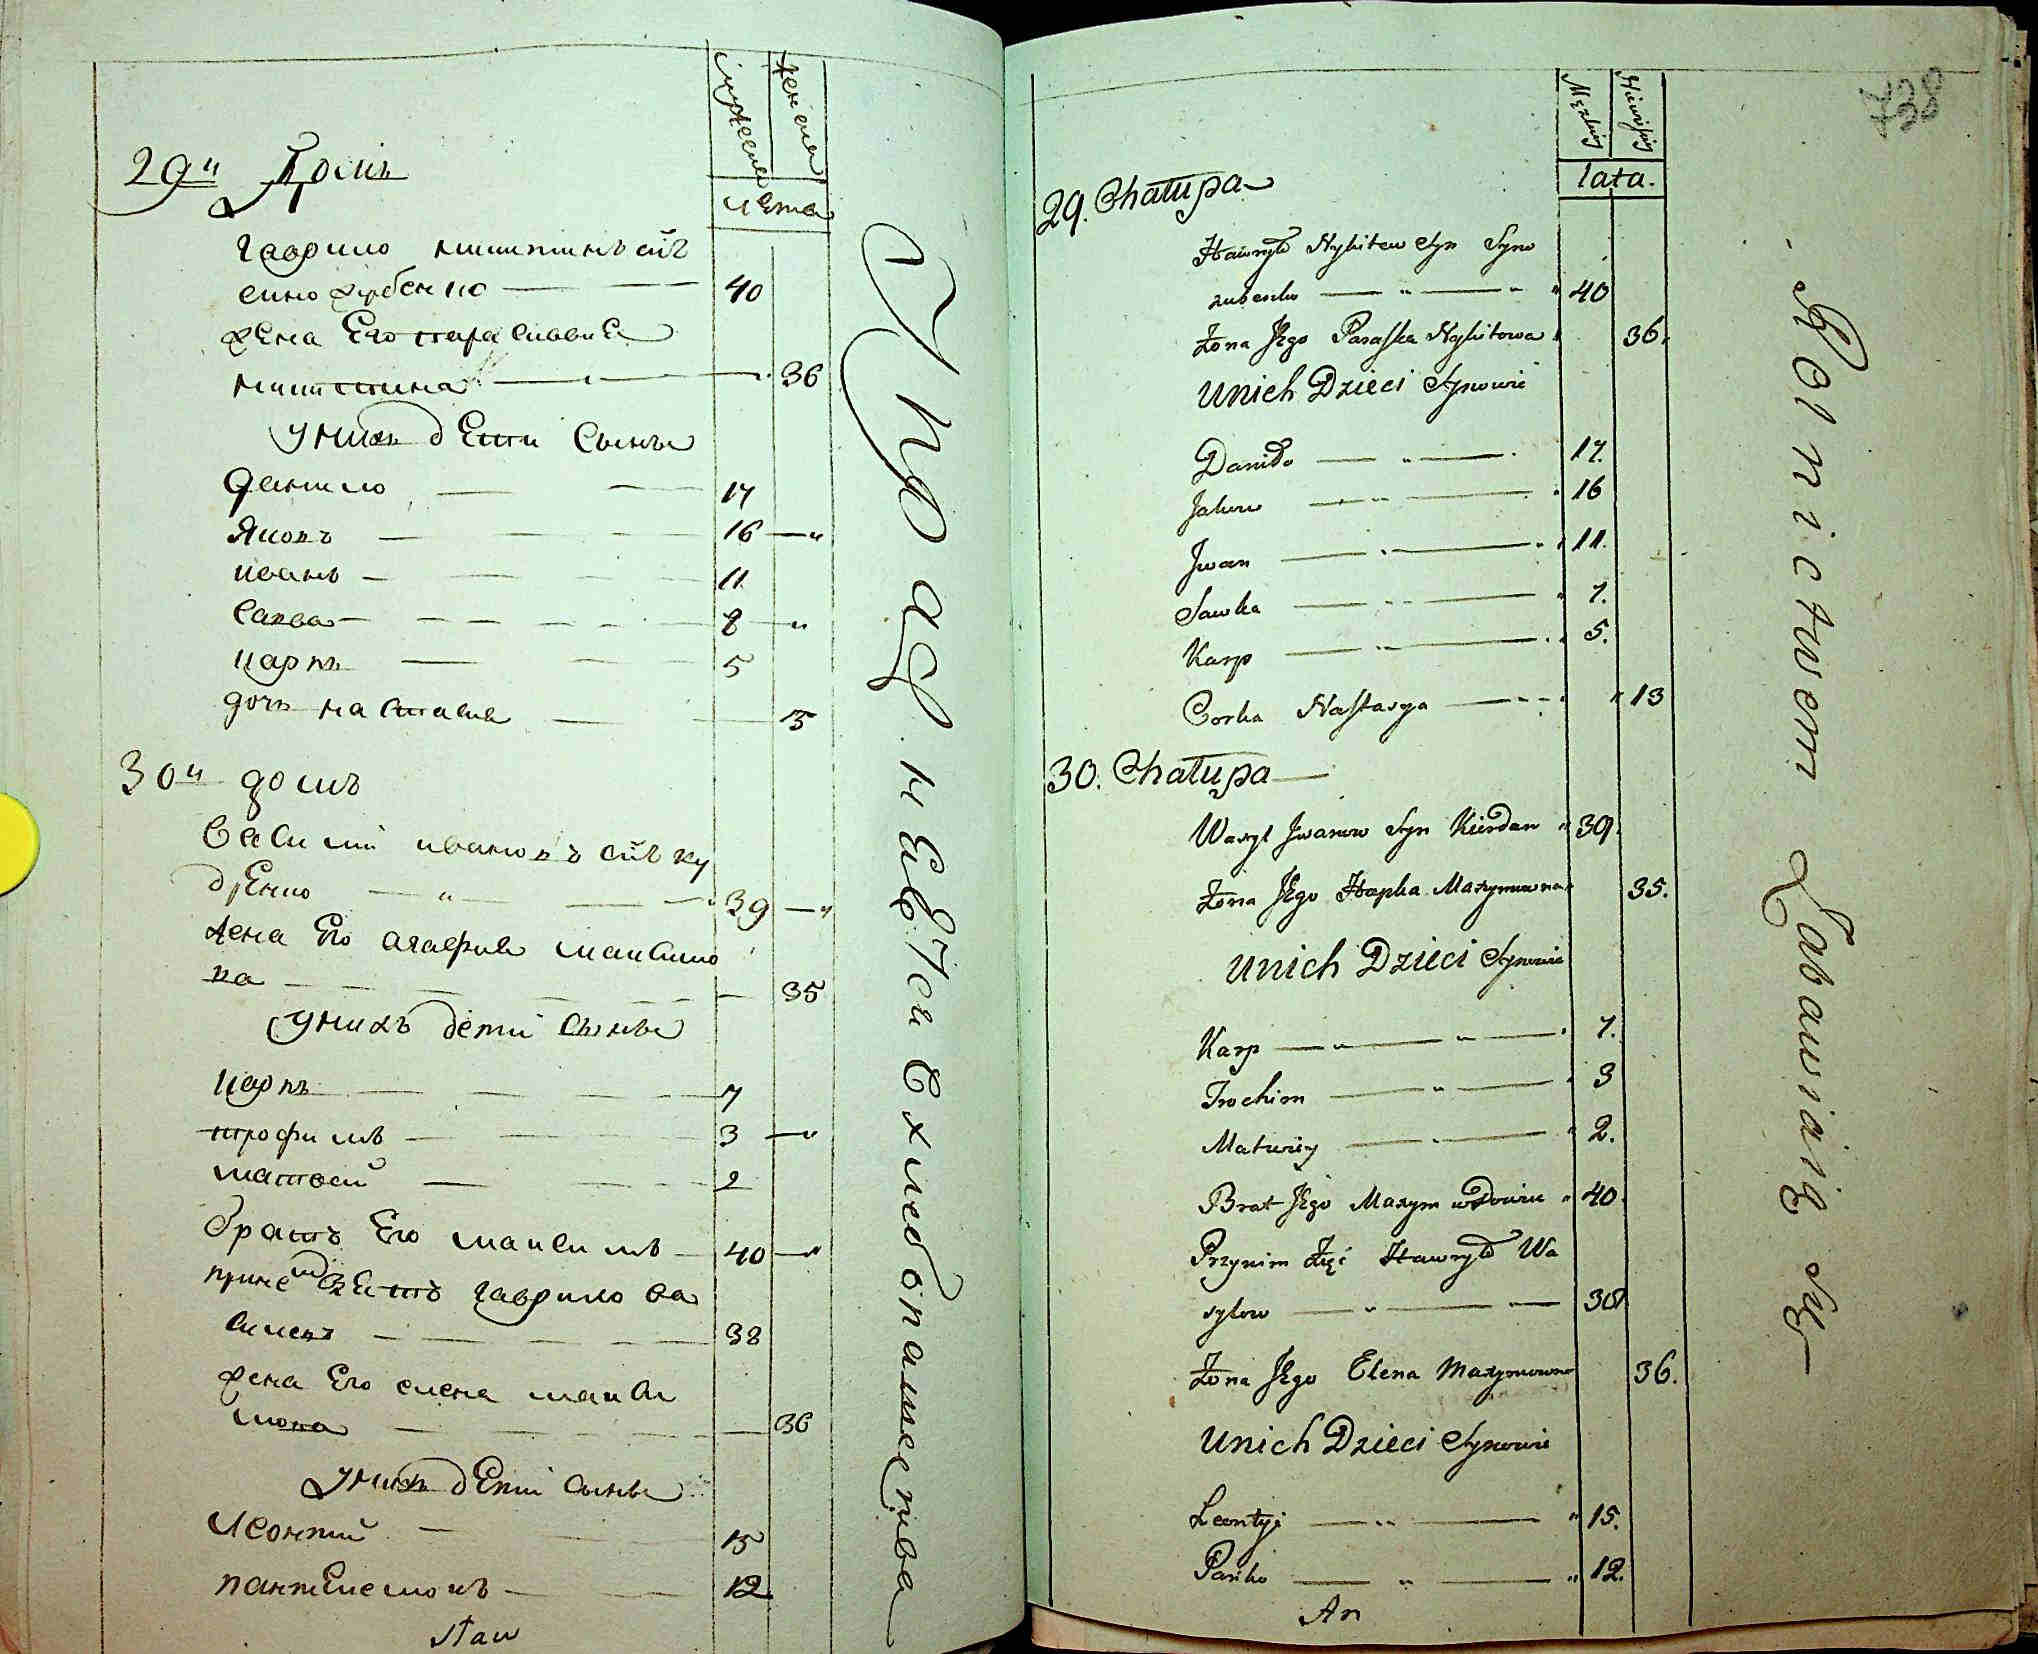 мужеска
женска
лета
29й Домъ
Гаврило микитинъ снъ
сынозубенко 40
жена Его параскивия
микитина 36
У нихъ дЕти Сыны
данило 17
Яковъ 16
иванъ 11
Савва 8
карпъ 5
дочь настасия
30й домъ
Василий ивановъ снъ ку
дрЕнко 39
жена Его агафия максимо
ва 35
У нихъ дети Сыны
карпъ 7
трофимъ 3
матвей 2
братъ Его максимъ 40
зЕть гаврило ва
силевъ 38
жена Его елена макси
мова 36
У нихъ дЕти сыны
леонтий 15
пантЕлемонъ 12
Упражняется
Ехлебопашества
738
Męzkiey
Lata.
29. Chałupa
Hawryło Nykitow Syn Syno
zubenko 40
Żona Jego Paraska Nykitowa 36.
Unich Dzieci Synowie
Daniło 17.
Jakow 16
Jwan 11.
Sawka 7.
Karp 5.
Corka Nastasya 13
30. Chałupa
Wasyl Jwanow Syn Kurdan 39.
Żona Jego Hapka Maxymowna 35.
Unich Dzieci Synowie
Karp 7.
Trochim 3
Matwiey 2.
Brat Jego Maxym wdowiec 40.
Przyim Zięć Hawryło Wa
sylow 38
Żona Jego Elena Maxymowna 36.
Unich Dzieci Synowie
Leontyi 15.
Pańko 12.
An
Rolnictwem Zabawiaią się